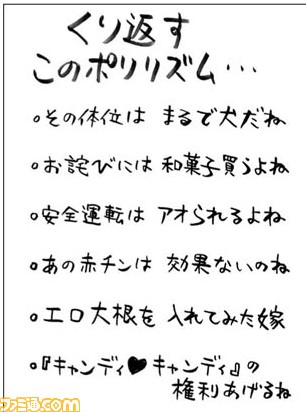 くり返す
このポリリズム…
。その体位は まるで犬だね
。お詫びには 和菓子買うよね
。安全運転は アオられるよね
。あの赤チンは 効果ないのね
。エロ大根を 入れてみた嫁
。『キャンディ♥キャンディ』の
権利あげるね
ファミ通.com